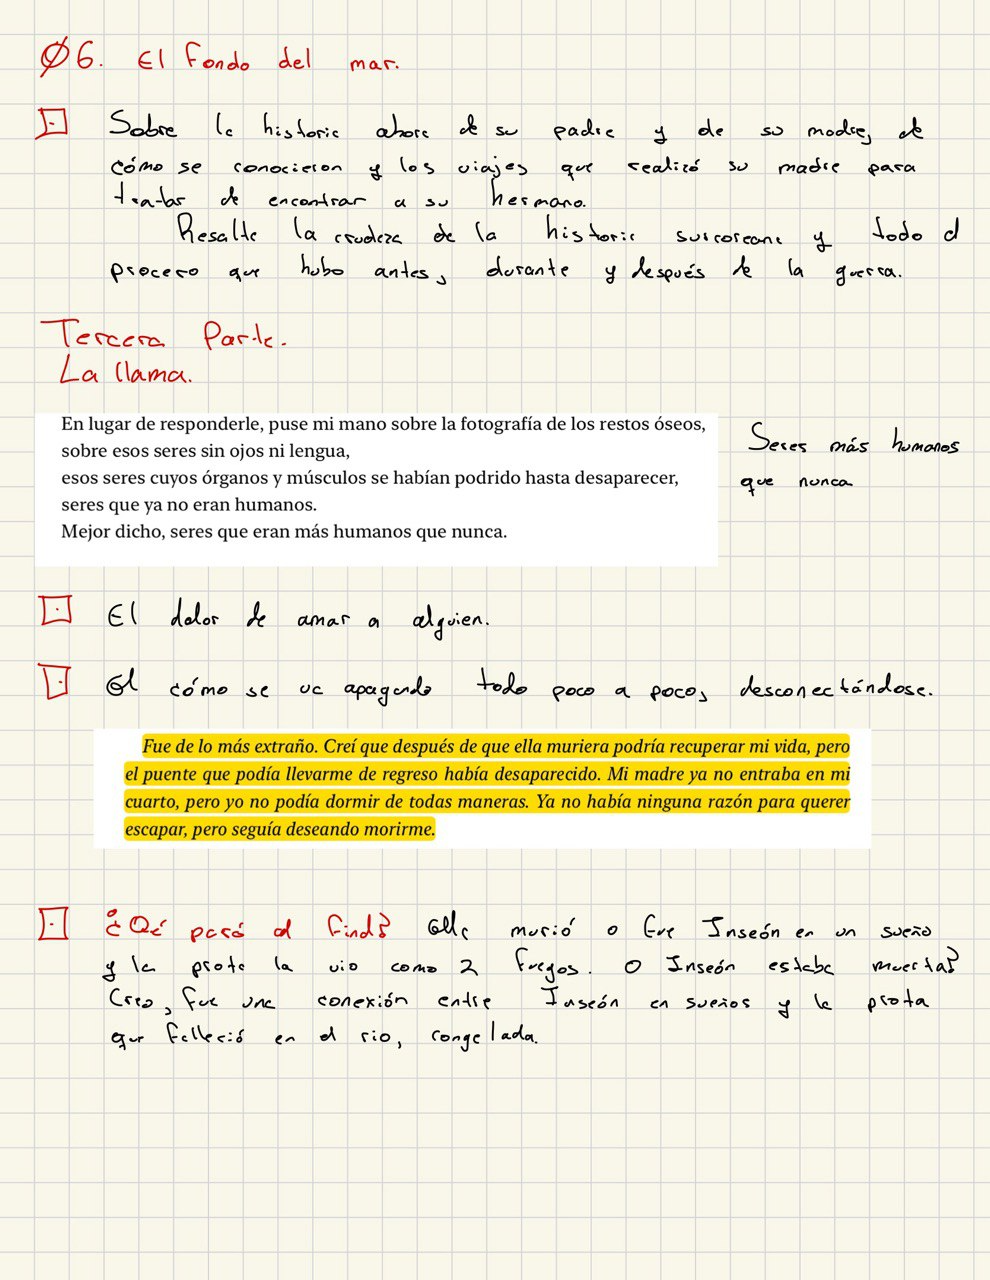 Ø6. El fondo del mar.
Sobre la historia ahora de su padre y de su madre, de
cómo se conocieron y los viajes que realizó su madre para
tratar de encontrar a su hermano.
Resalta la crudeza de la historia surcoreana y todo el
proceso que hubo antes, durante y después de la guerra.
Tercera Parte.
La llama.
En lugar de responderle, puse mi mano sobre la fotografía de los restos óseos,
sobre esos seres sin ojos ni lengua,
esos seres cuyos órganos y músculos se habían podrido hasta desaparecer,
seres que ya no eran humanos.
Mejor dicho, seres que eran más humanos que nunca.
Seres más humanos
que nunca
El dolor de amar a alguien.
El cómo se va apagando todo poco a poco, desconectándose.
Fue de lo más extraño. Creí que después de que ella muriera podría recuperar mi vida, pero
el puente que podía llevarme de regreso había desaparecido. Mi madre ya no entraba en mi
cuarto, pero yo no podía dormir de todas maneras. Ya no había ninguna razón para querer
escapar, pero seguía deseando morirme.
¿Qué pasó al final? Ella murió o fue Inseón en un sueño
y la prota la vio como 2 fuegos. O Inseón estaba muerta?
Creo, fue una conexión entre Inseón en sueños y la prota
que falleció en el rio, congelada.